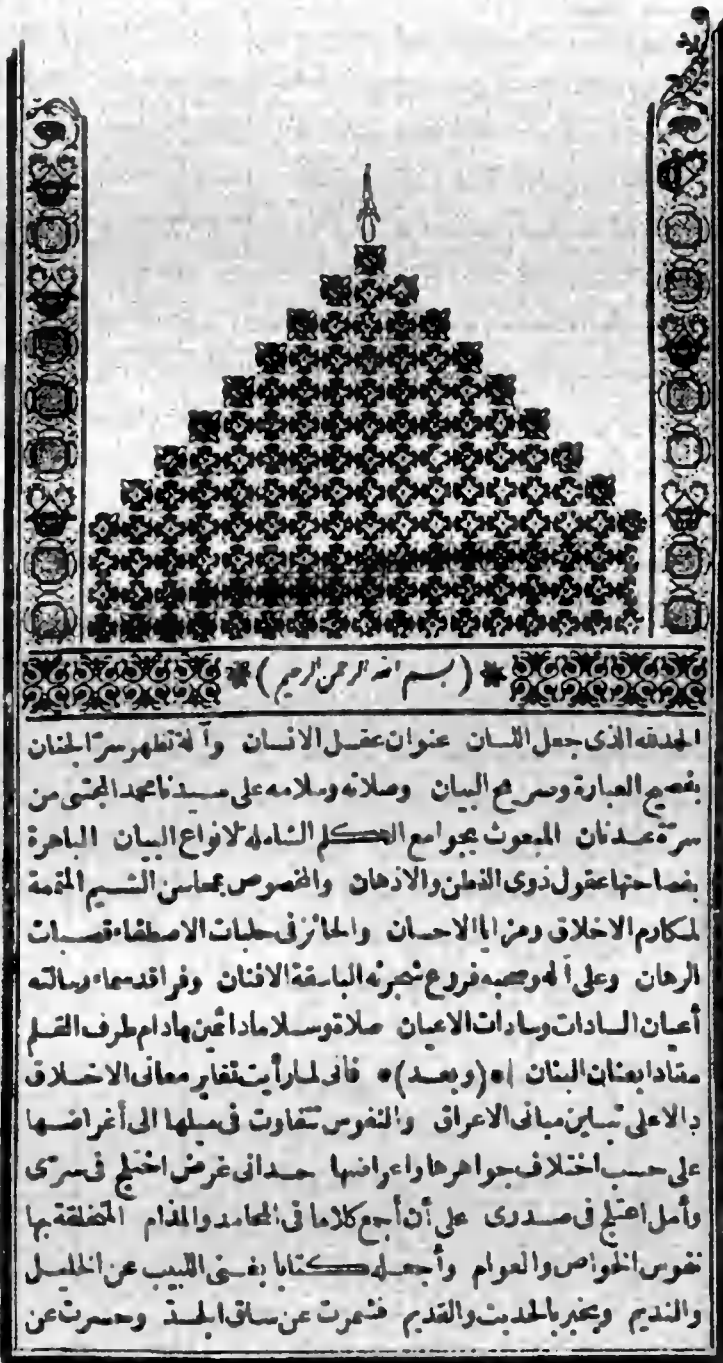 (بسم الله الرحمن الرحيم)
الحمد لله الذى جعل اللسان عنوان عقل الانسان وآلة تظهر سر الجنان
بفصيح العبارة وصريح البيان وصلاته وسلامه على سيدنا محمد المجتبى من
سرة عدنان المبعوث بجوامع الكلم الشاملة لانواع البيان الباهرة
بفصاحتها عقول ذوى الفطن والاذهان والمخصوص بمحاسن الشيم المتممة
لمكارم الاخلاق ومزايا الاحسان والحائز فى حلبات الاصطفاء قصبات
الرهان وعلى آله وصحبه فروع شجرته الباسقة الافنان وفراقد سماء رسالته
أعيان السادات وسادات الاعيان صلاة وسلاما دائمين مادام طرف القلم
منقادا بعنان البنان (وبعد) فانى لما رأيت تغاير معانى الاخلاق
دالا على تباين مبانى الاعراق والنفوس تتفاوت فى ميلها الى أغراضها
على حسب اختلاف جواهرها وأعراضها حدانى غرض اختلج فى سرى
وأمل اعتلج فى صدرى على أن أجمع كلاما فى المحامد والمذام المتخلقة بها
نفوس الخواص والعوام وأجعله كتابا يغنى اللبيب عن الخليل
والنديم ويخبر بالحديث والقديم فشمرت عن ساق الجد وحسرت عن